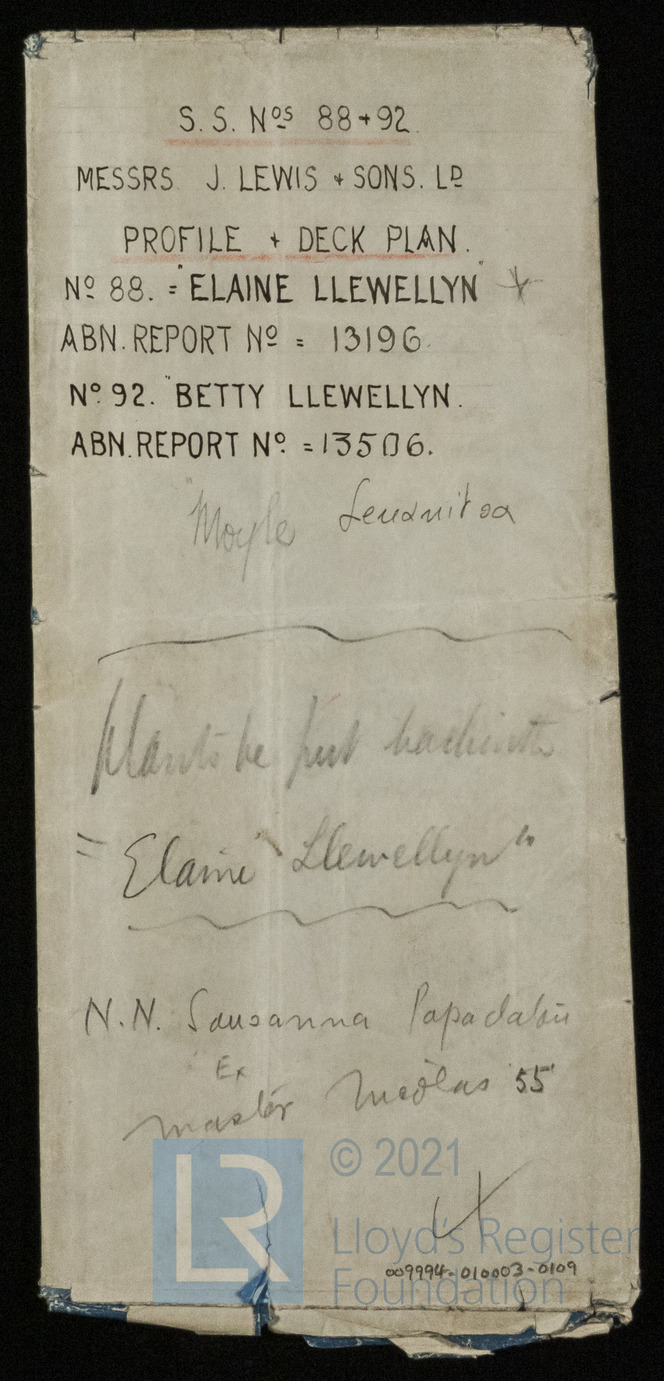 S. S. Nos 88+92.
MESSRS J. LEWIS + SONS. LD
PROFILE + DECK PLAN.
No 88. = "ELAINE LLEWELLYN"
ABN. REPORT No = 13196.
No 92. "BETTY LLEWELLYN.
ABN. REPORT No = 13506.
"Moyle
be put
"Elaine Llewellyn"
N.N. Sousanna
Ex
master 55
LR
© 2021
Lloyd's Register
009994-010003-0109
Foundation